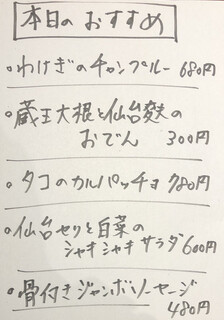 本日のおすすめ
・わけぎのチャンプルー 680円
・蔵王大根と仙台麩の
おでん 300円
・タコのカルパッチョ 780円
・仙台セリと白菜の
シャキシャキサラダ 600円
・骨付きジャンボソーセージ
480円